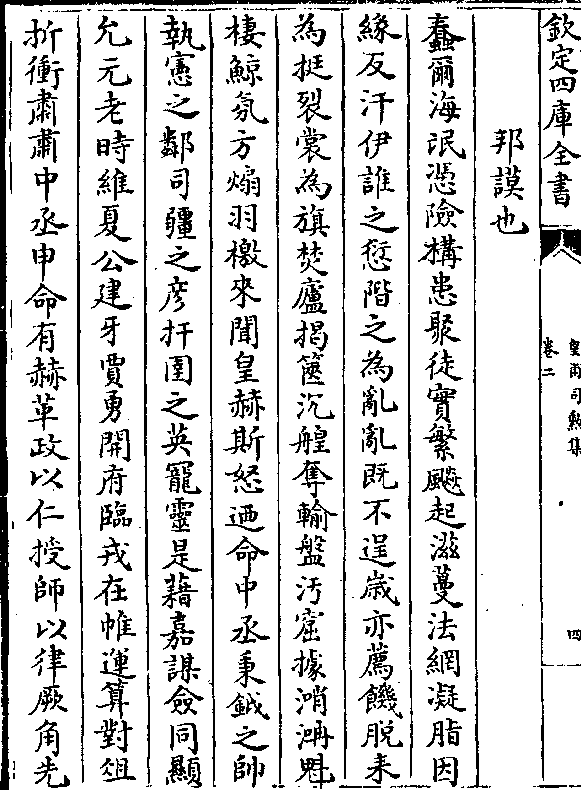 欽定四庫全書
皇甫司勲集
卷二
四
邦謨也
蠢爾海氓憑險構患聚徒實繁飈起滋蔓法網凝脂因
緣反汗伊誰之愆階之為亂亂既不逞歳亦薦饑脫耒
為挺裂裳為旗焚廬揭篋沉艎奪輸盤汚窟據澒洞魁
棲鯨氛方煽羽檄來聞皇赫斯怒迺命中丞秉鉞之帥
執憲之鄰司疆之彥扞圉之英寵靈是藉嘉謀僉同顯
允元老時維夏公建牙賈勇開府臨戎在帷運算對俎
折衝肅肅中丞申命有赫革政以仁授師以律厥角先